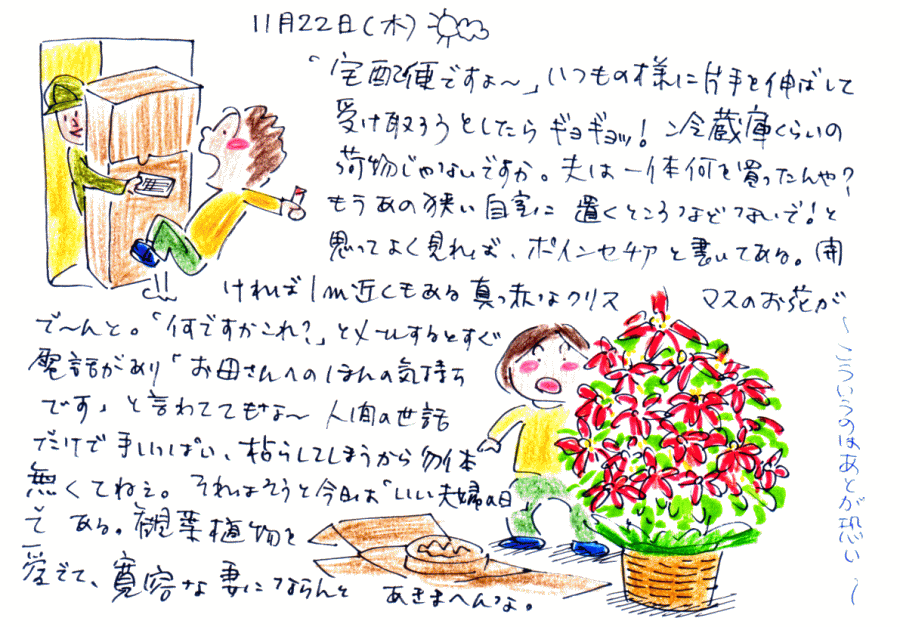 11月22日(木)
「宅配便ですよ〜」いつもの様に片手を伸ばして
受け取ろうとしたらギョギョッ! 冷蔵庫くらいの
荷物じゃないですか。夫は一体何を買ったんや?
もうあの狭い自室に 置くところなどないで!と
思ってよく見れば、ポインセチアと書いてある。開
ければ1m近くもある真っ赤なクリス マスのお花が
で〜んと。「何ですかこれ?」とメールするとすぐ
電話があり「お母さんへのほんの気持ち
です」と言わててもな〜 人間の世話
だけで手いっぱい、枯らしてしまうから勿体
無くてねぇ。それはそうと今日は「いい夫婦の日
で ある。観葉植物を
愛でて、寛容な妻にならんと あきまへんな。
〜こういうのはあとが恐い〜